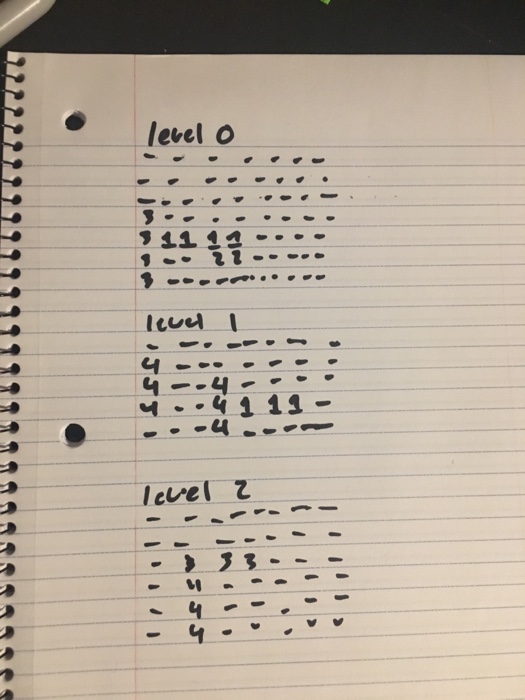 level 0
- - - - - - -
- - - - - - - .
- - - - - - - -
3 - - - - - - - -
3 1 1 1 1 - - - -
3 - - 2 2 - - - - -
3 - - - - - - - - -
level 1
- - - - - - - -
4 - - - - - - -
4 - - 4 - - - -
4 - - 4 1 1 1 -
- - - 4 - - - -
level 2
- - - - - - - -
- - - - - - -
- 3 3 3 - - - -
- 4 - - - - -
- 4 - - - - -
- 4 - - - - -